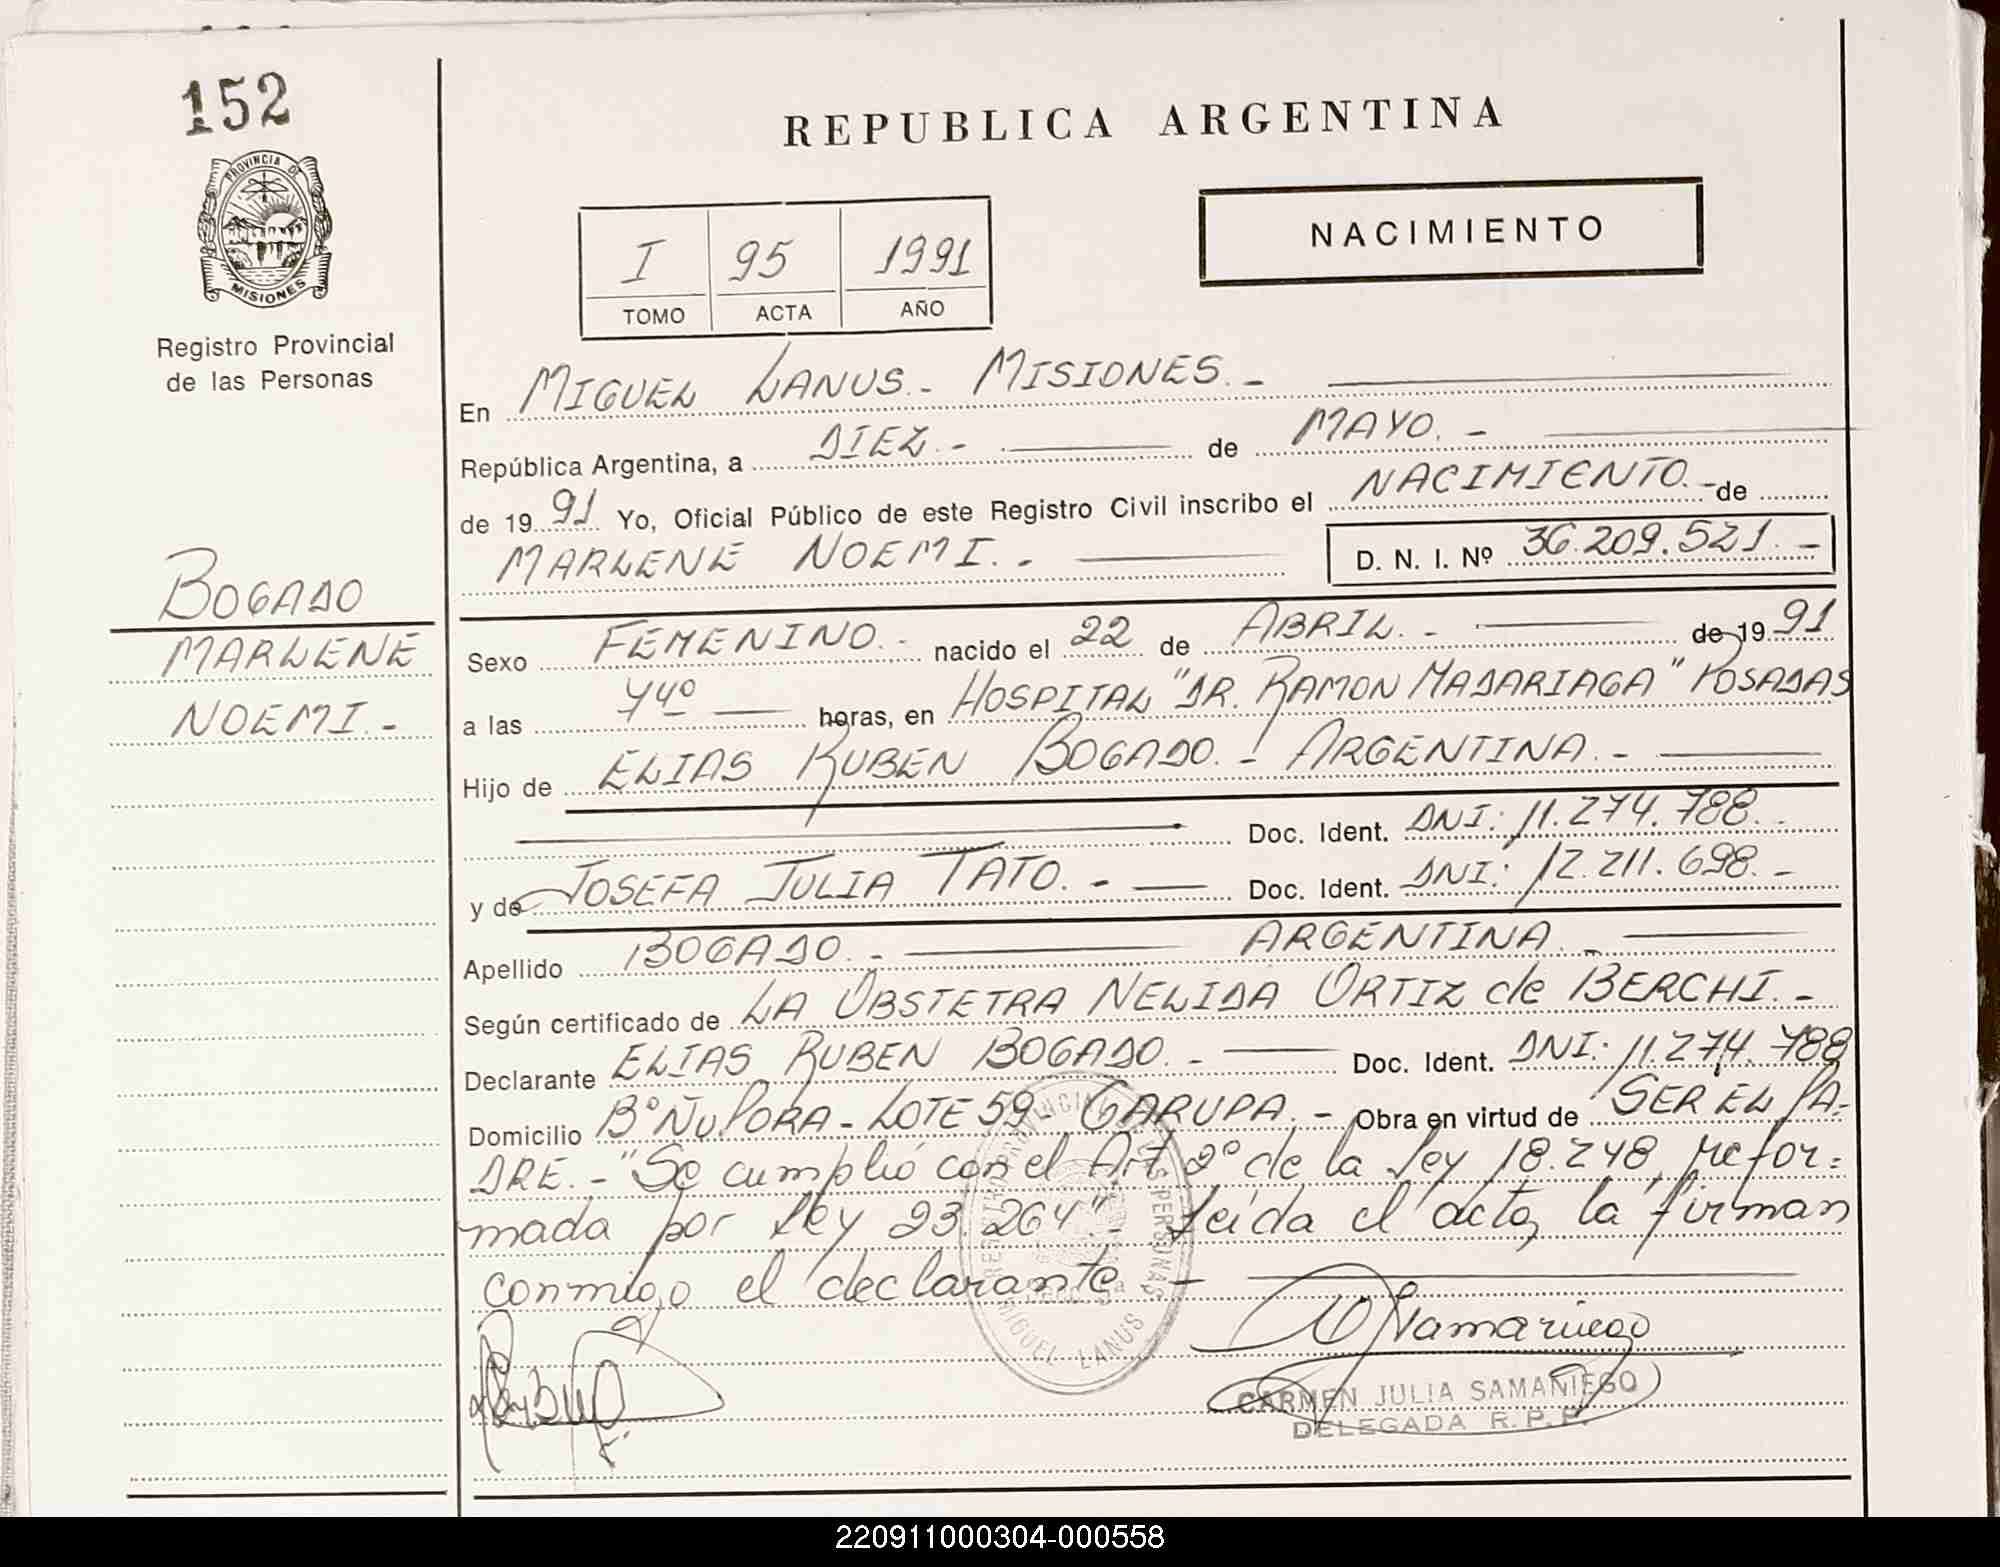 152
PROVINCIA DE
MISIONES
Registro Provincial
de las Personas
BOGADO
MARLENE
NOEMI.-
REPUBLICA ARGENTINA
NACIMIENTO
I 95 1991
TOMO ACTA AÑO
En MIGUEL LANUS.- MISIONES.-
República Argentina, a DIEZ.- de MAYO.-
de 19 91 Yo, Oficial Público de este Registro Civil inscribo el NACIMIENTO.- de
MARLENE NOEMI.- D. N. I. Nº 36.209.521.-
Sexo FEMENINO.- nacido el 22 de ABRIL.- de 19 91
a las 7⁴⁰ horas, en HOSPITAL "DR. RAMON MADARIAGA" POSADAS
Hijo de ELIAS RUBEN BOGADO.- ARGENTINA.-
Doc. Ident. DNI: 11.274.788.-
y de JOSEFA JULIA TATO.- Doc. Ident. DNI: 12.211.698.-
Apellido BOGADO.- ARGENTINA.-
Según certificado de LA OBSTETRA NELIDA ORTIZ de BERCHI.-
Declarante ELIAS RUBEN BOGADO.- Doc. Ident. DNI: 11.274.788
Domicilio Bº ÑU PORA - LOTE 59 - GARUPA.- Obra en virtud de SER EL PA-
DRE.- "Se cumplió con el Art 2º de la Ley 18.248, refor=
mada por Ley 23.264".- Leída el acta, la firman
conmigo el declarante.-
MIGUEL LANUS
CARMEN JULIA SAMANIEGO
DELEGADA R.P.P.
220911000304-000558